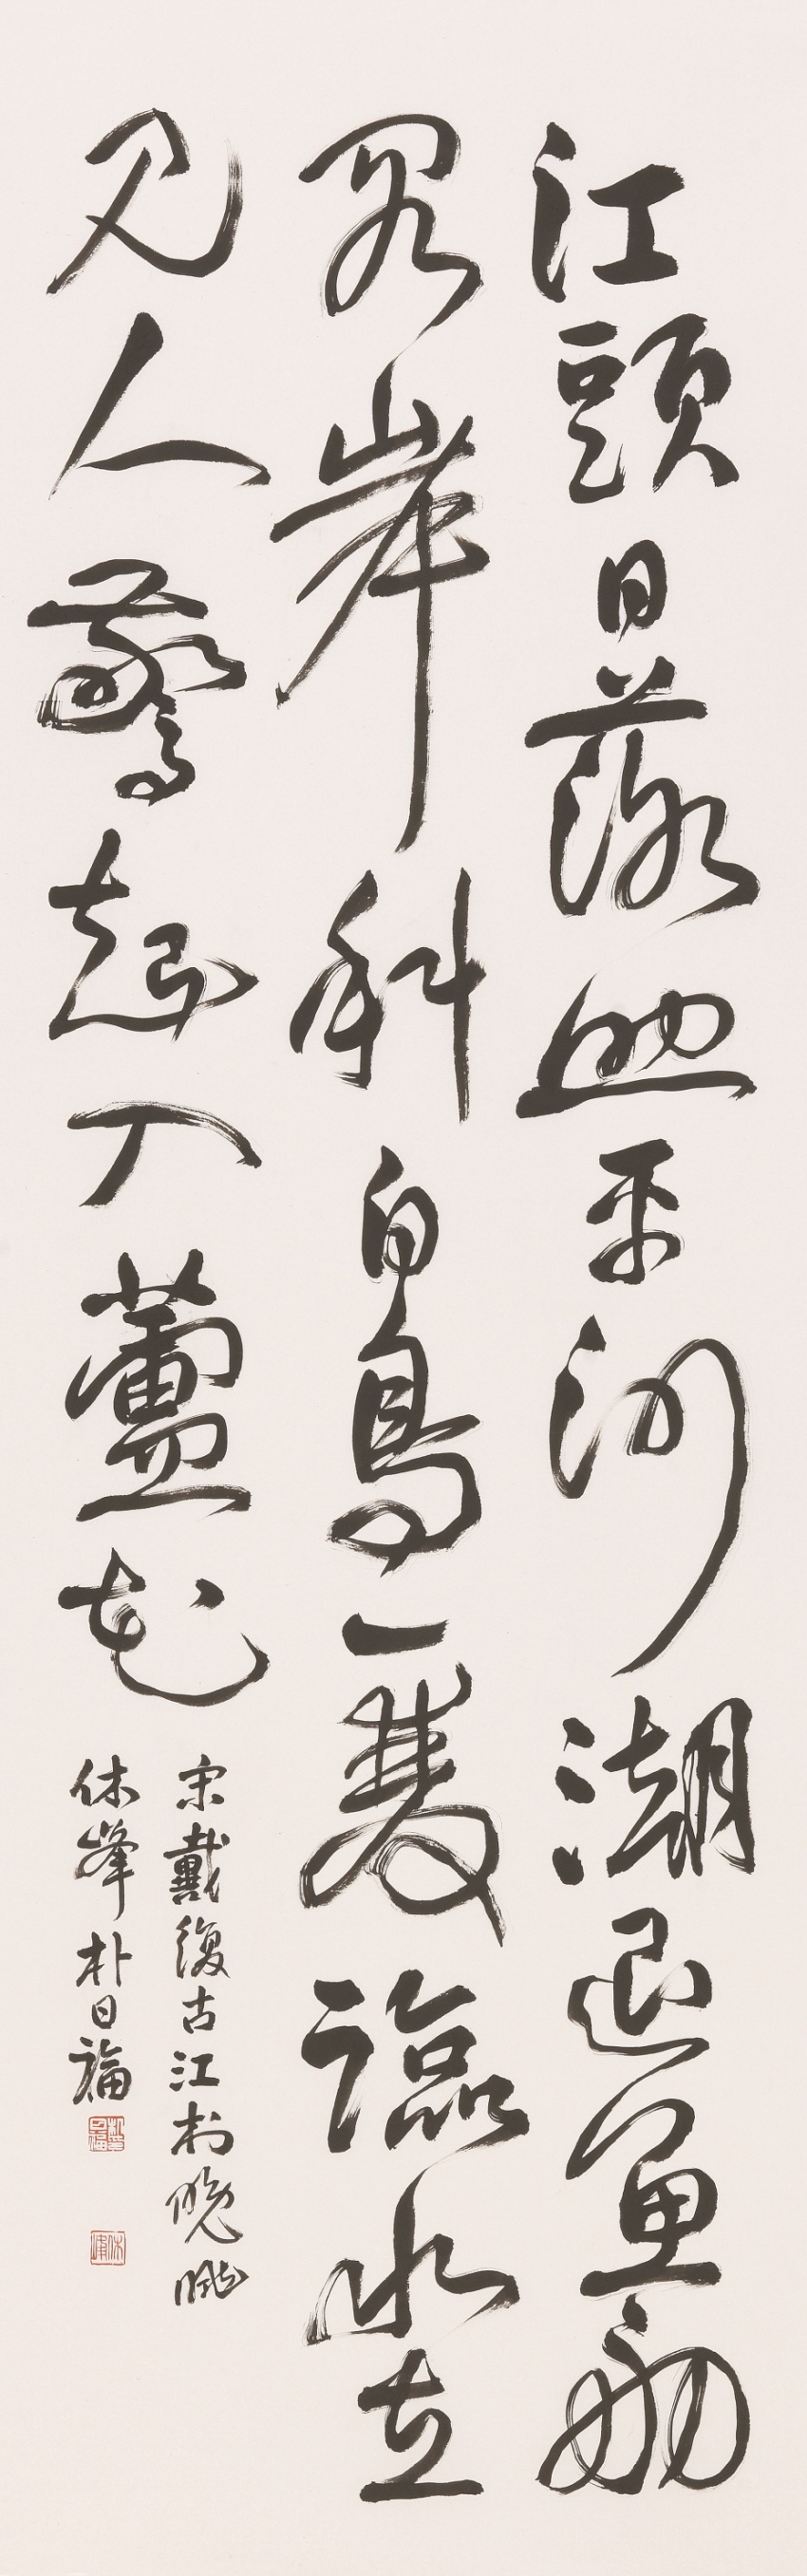 江頭日落照平沙潮退魚舠
閣岸斜白鳥一雙臨水立
見人驚起入蘆花
宋戴復古江村晚眺
休峯朴日福